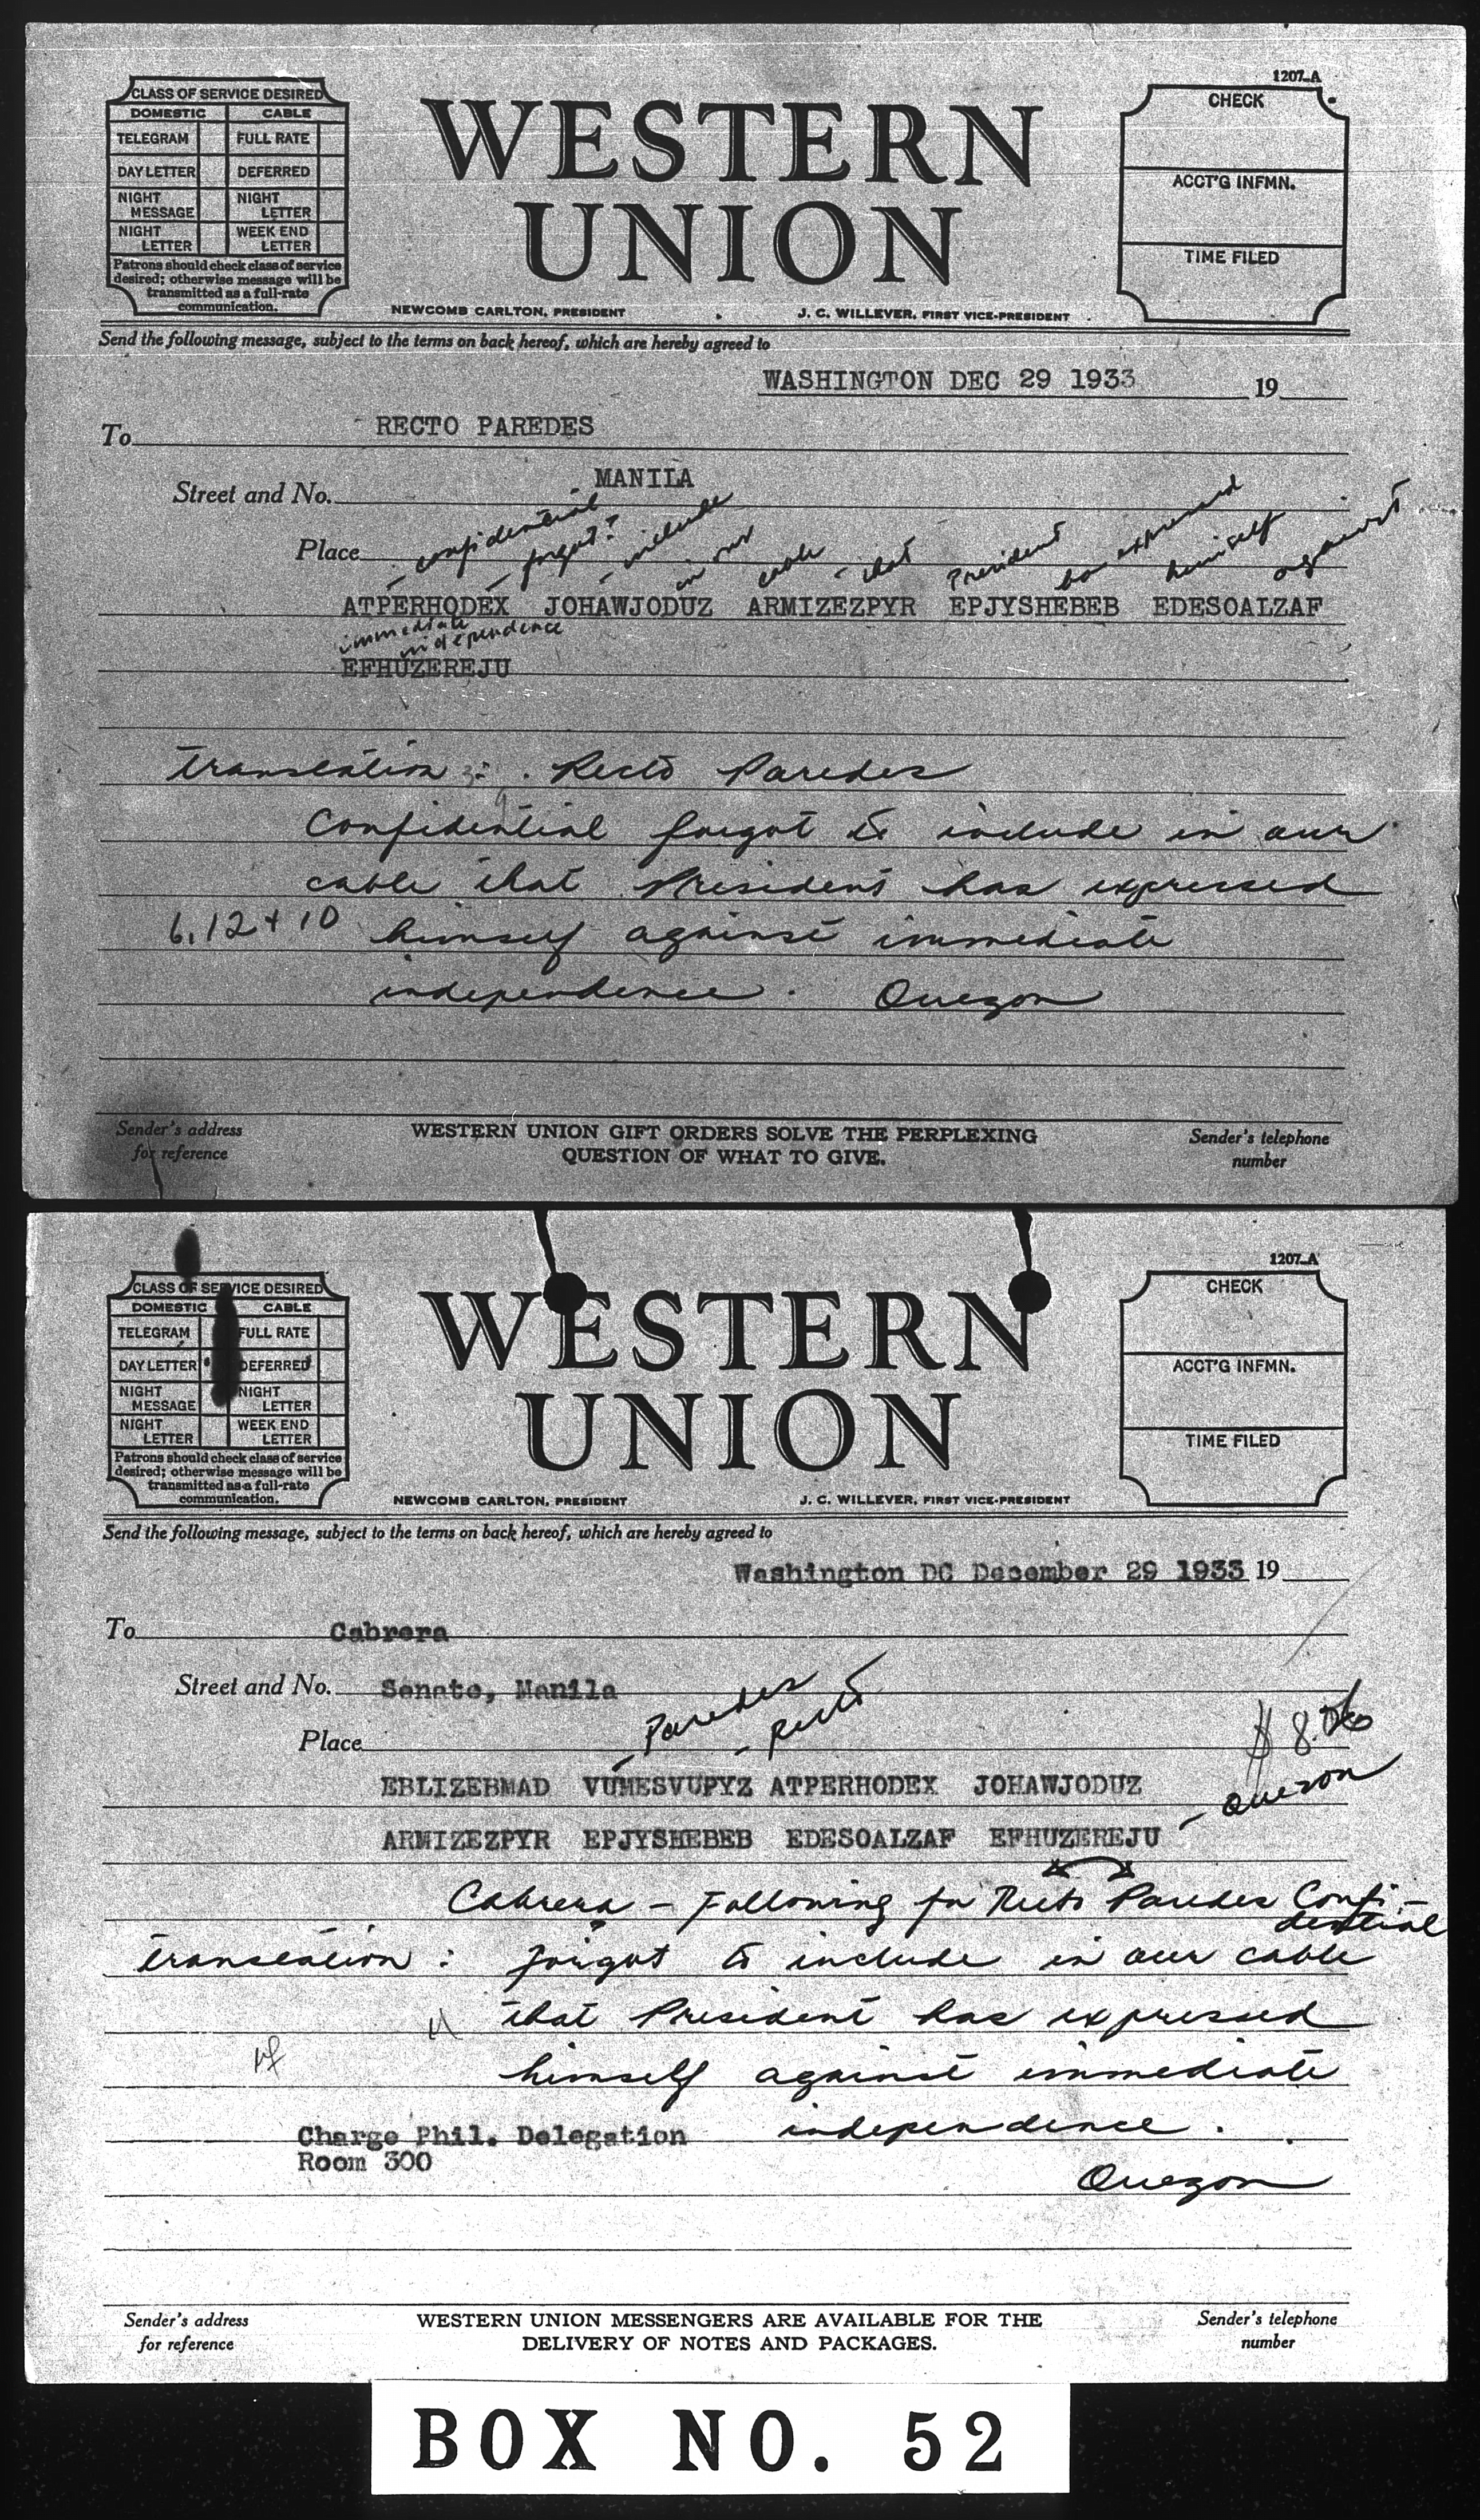 1207-A
CLASS OF SERVICE DESIRED
DOMESTIC CABLE
TELEGRAM FULL RATE
DAY LETTER DEFERRED
NIGHT MESSAGE NIGHT LETTER
NIGHT LETTER WEEK END LETTER
Patrons should check class of service
desired; otherwise message will be
transmitted as a full-rate
communication.
WESTERN
UNION
NEWCOMB CARLTON, PRESIDENT J. C. WILLEVER, FIRST VICE-PRESIDENT
CHECK
ACCT'G INFMN.
TIME FILED
Send the following message, subject to the terms on back hereof, which are hereby agreed to
WASHINGTON DEC 29 1933 19
To RECTO PAREDES
Street and No. MANILA
Place
confidential forgot? include in our cable that President has expressed himself against
ATPERHODEX JOHAWJODUZ ARMIZEZPYR EPJYSHEBEB EDESOALZAF
immediate independence
EFHUZEREJU
translation: Recto Paredes
Confidential forgot to include in our
cable that President has expressed
6,12+10 himself against immediate
independence. Quezon
Sender's address
for reference
WESTERN UNION GIFT ORDERS SOLVE THE PERPLEXING
QUESTION OF WHAT TO GIVE.
Sender's telephone
number
1207-A
CLASS OF SERVICE DESIRED
DOMESTIC CABLE
TELEGRAM FULL RATE
DAY LETTER DEFERRED
NIGHT MESSAGE NIGHT LETTER
NIGHT LETTER WEEK END LETTER
Patrons should check class of service
desired; otherwise message will be
transmitted as a full-rate
communication.
WESTERN
UNION
NEWCOMB CARLTON, PRESIDENT J. C. WILLEVER, FIRST VICE-PRESIDENT
CHECK
ACCT'G INFMN.
TIME FILED
Send the following message, subject to the terms on back hereof, which are hereby agreed to
Washington DC December 29 1933 19
To Cabrera
Street and No. Senate, Manila
Place
Paredes Recto
$ 8.
EBLIZEBMAD VUMESVUPYZ ATPERHODEX JOHAWJODUZ
Quezon
ARMIZEZPYR EPJYSHEBEB EDESOALZAF EFHUZEREJU
Cabrera - Following for Recto Paredes Confi-
dential
translation: forgot to include in our cable
that President has expressed
himself against immediate
independence.
Charge Phil. Delegation
Room 300
Quezon
Sender's address
for reference
WESTERN UNION MESSENGERS ARE AVAILABLE FOR THE
DELIVERY OF NOTES AND PACKAGES.
Sender's telephone
number
BOX NO. 52